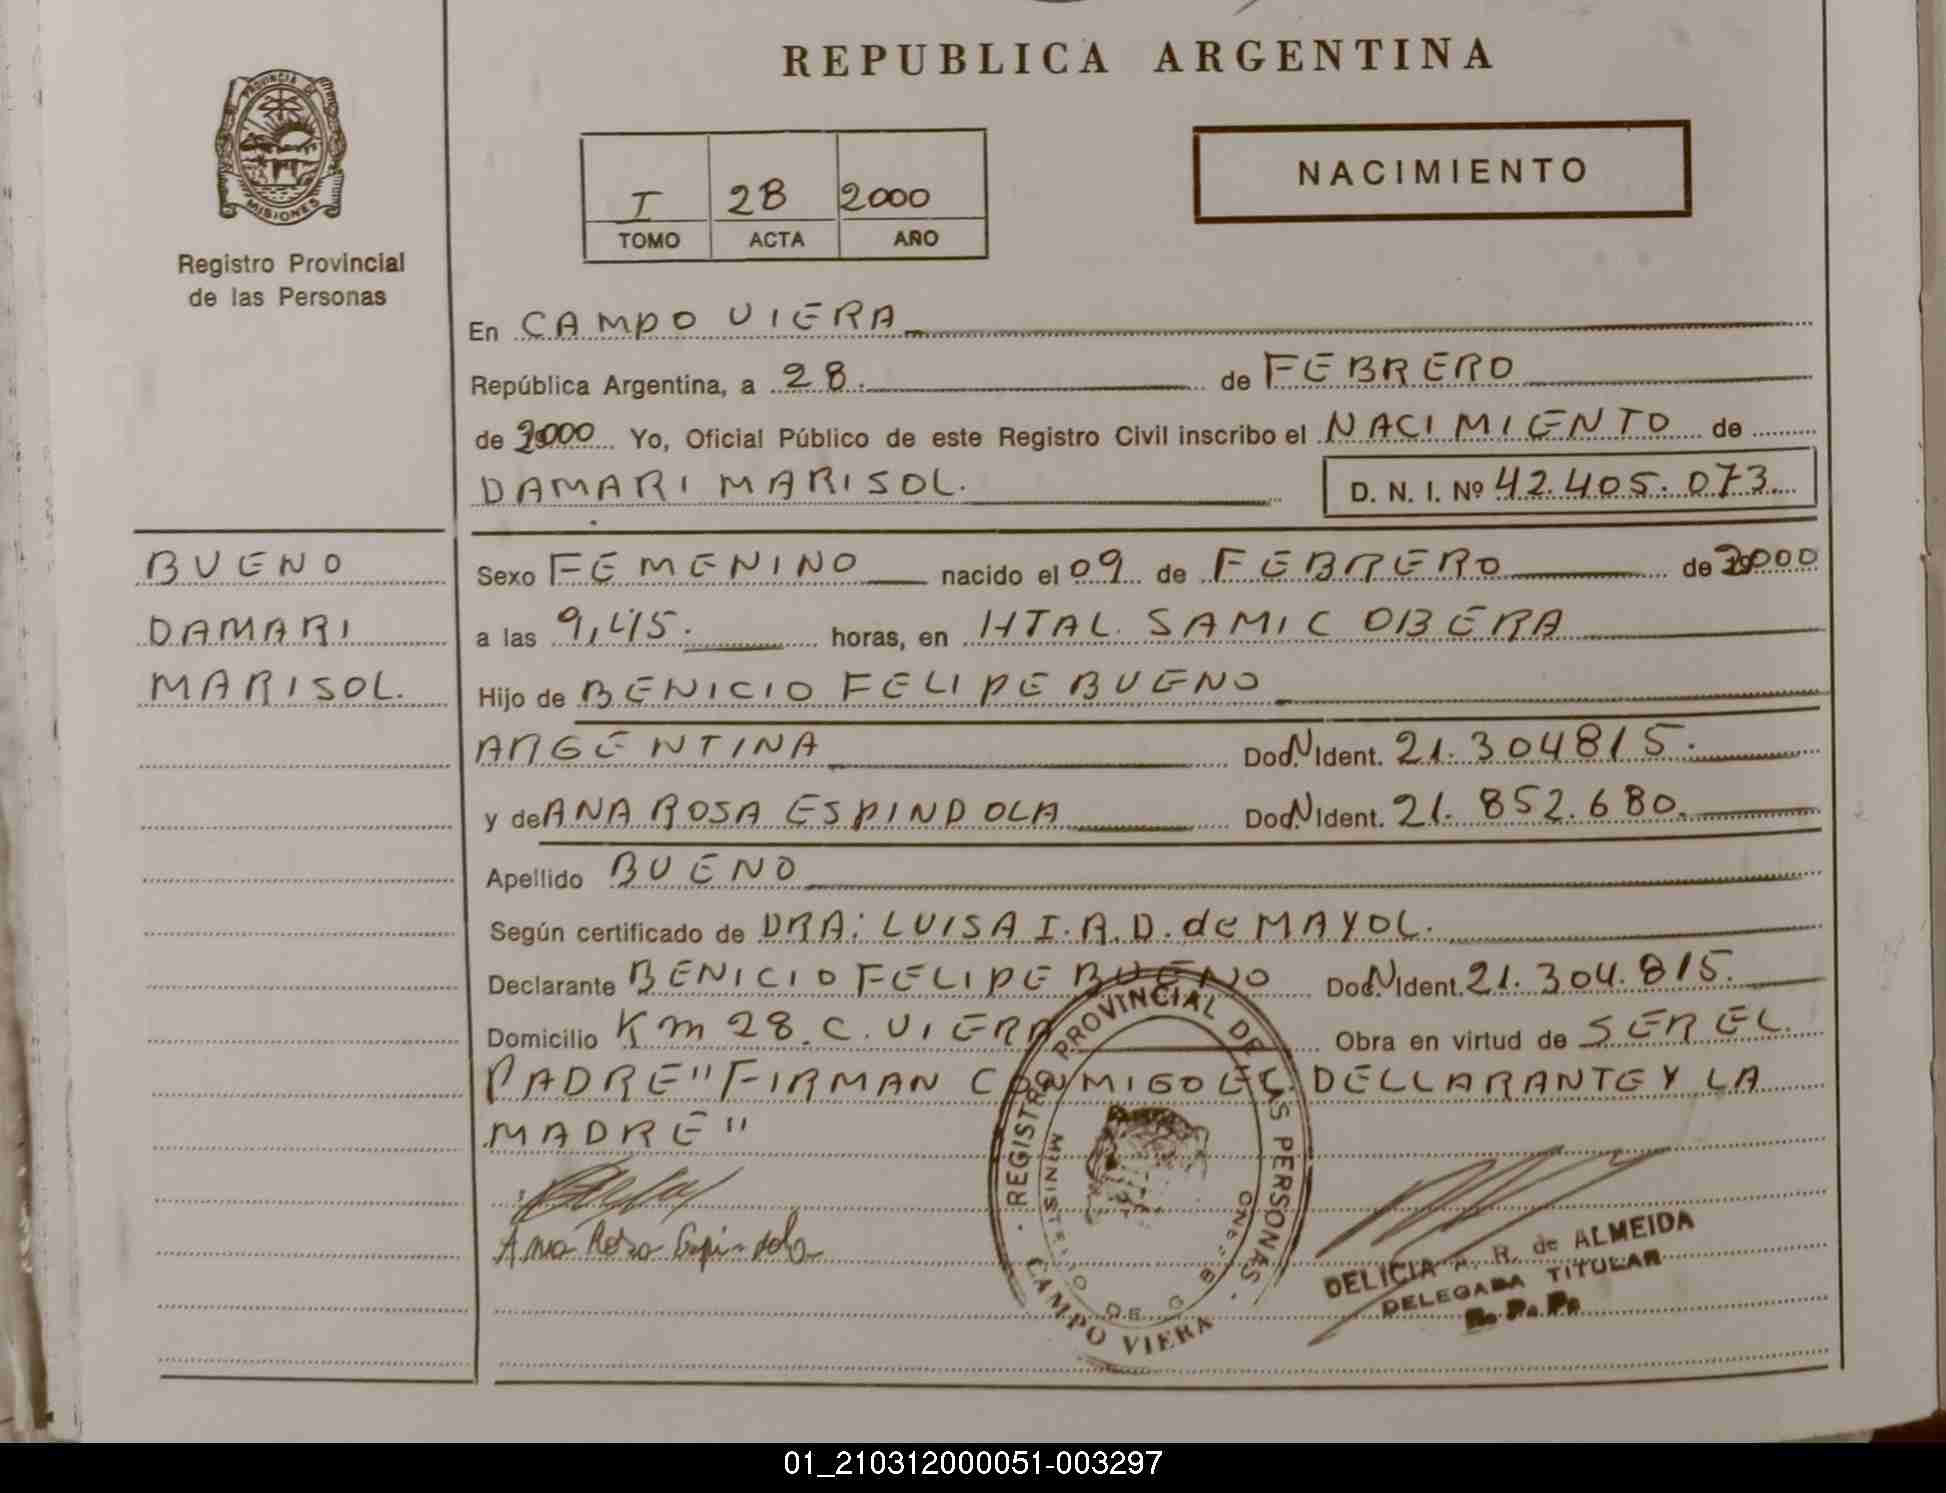 REPUBLICA ARGENTINA
PROVINCIA DE
MISIONES
Registro Provincial
de las Personas
I 28 2000
TOMO ACTA AÑO
NACIMIENTO
En CAMPO VIERA
República Argentina, a 28. de FEBRERO
de 2000 Yo, Oficial Público de este Registro Civil inscribo el NACIMIENTO de
DAMARI MARISOL. D. N. I. Nº 42.405.073.
BUENO
DAMARI
MARISOL.
Sexo FEMENINO nacido el 09 de FEBRERO de 2000
a las 9,45. horas, en HTAL. SAMIC OBERA
Hijo de BENICIO FELIPE BUENO
ARGENTINA Doc.N Ident. 21.304815.
y de ANA ROSA ESPINDOLA Doc.N Ident. 21.852.680.
Apellido BUENO
Según certificado de DRA: LUISA I.A.D. de MAYOL.
Declarante BENICIO FELIPE BUENO Doc.N Ident. 21.304.815.
Domicilio Km 28. C. VIERA Obra en virtud de SER EL
PADRE" FIRMAN CONMIGO EL DELLARANTE Y LA
MADRE"
Ana Rosa Espindola
REGISTRO PROVINCIAL DE LAS PERSONAS
MINISTERIO DE GOBIERNO
CAMPO VIERA
DELICIA A. R. de ALMEIDA
DELEGADA TITULAR
R. P. P.
01_210312000051-003297